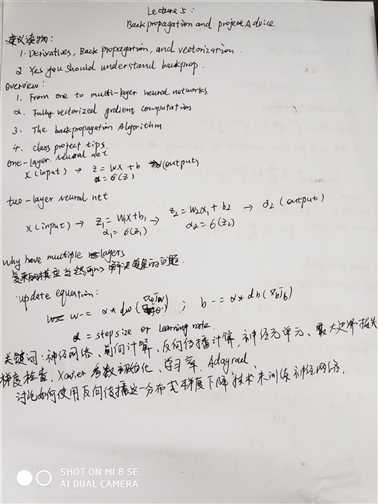 Lecture 5:
Backpropagation and project Advice
建议读物:
1. Derivatives, Back propagation, and vectorization.
2 Yes you should understand backprop.
Overview:
1. From one to multi-layer neural networks
2. Fully vectorized gradient computation
3. The backpropagation Algorithm
4. class project tips.
one-layer neural net
x (input) → z = wx + b (output)
a = σ(z)
two-layer neural net
x (input) → z₁ = w₁x + b₁ → z₂ = w₂x₁ + b₂ → a₂ (output)
a₁ = σ(z₁) a₂ = σ(z₂)
why have multiple layers
的问题.
update equation:
w -= α * dw ; b -= α * db
α = step size or learning rate.
关键词: 神经网络、前向计算、反向传播计算、神经元单元、最大
梯度检查、Xavier 参数初始化、学习率、Adagrad.
讨论如何使用反向传播这一分布式梯度下降技术来训练神经网络.
SHOT ON MI 8 SE
AI DUAL CAMERA